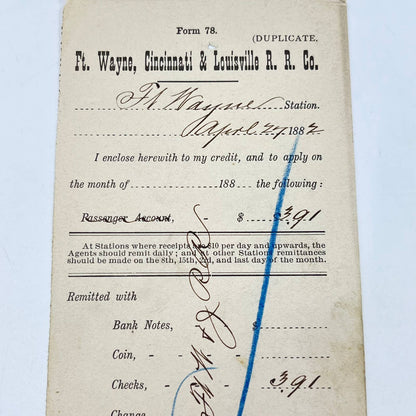 Form 78.
(DUPLICATE,
Ft. Wayne, Cincinnati & Louisville R. R. Co.
Ft Wayne Station.
April 24 1882
I enclose herewith to my credit, and to apply on
the month of 188 the following:
Passenger Account, - $ 3.91
At Stations where receipts are $10 per day and upwards, the
Agents should remit daily; and at other Stations remittances
should be made on the 8th, 15th, 22d, and last day of the month.
Remitted with
Bank Notes, $
Coin, - -
Checks, - 3.91
Change